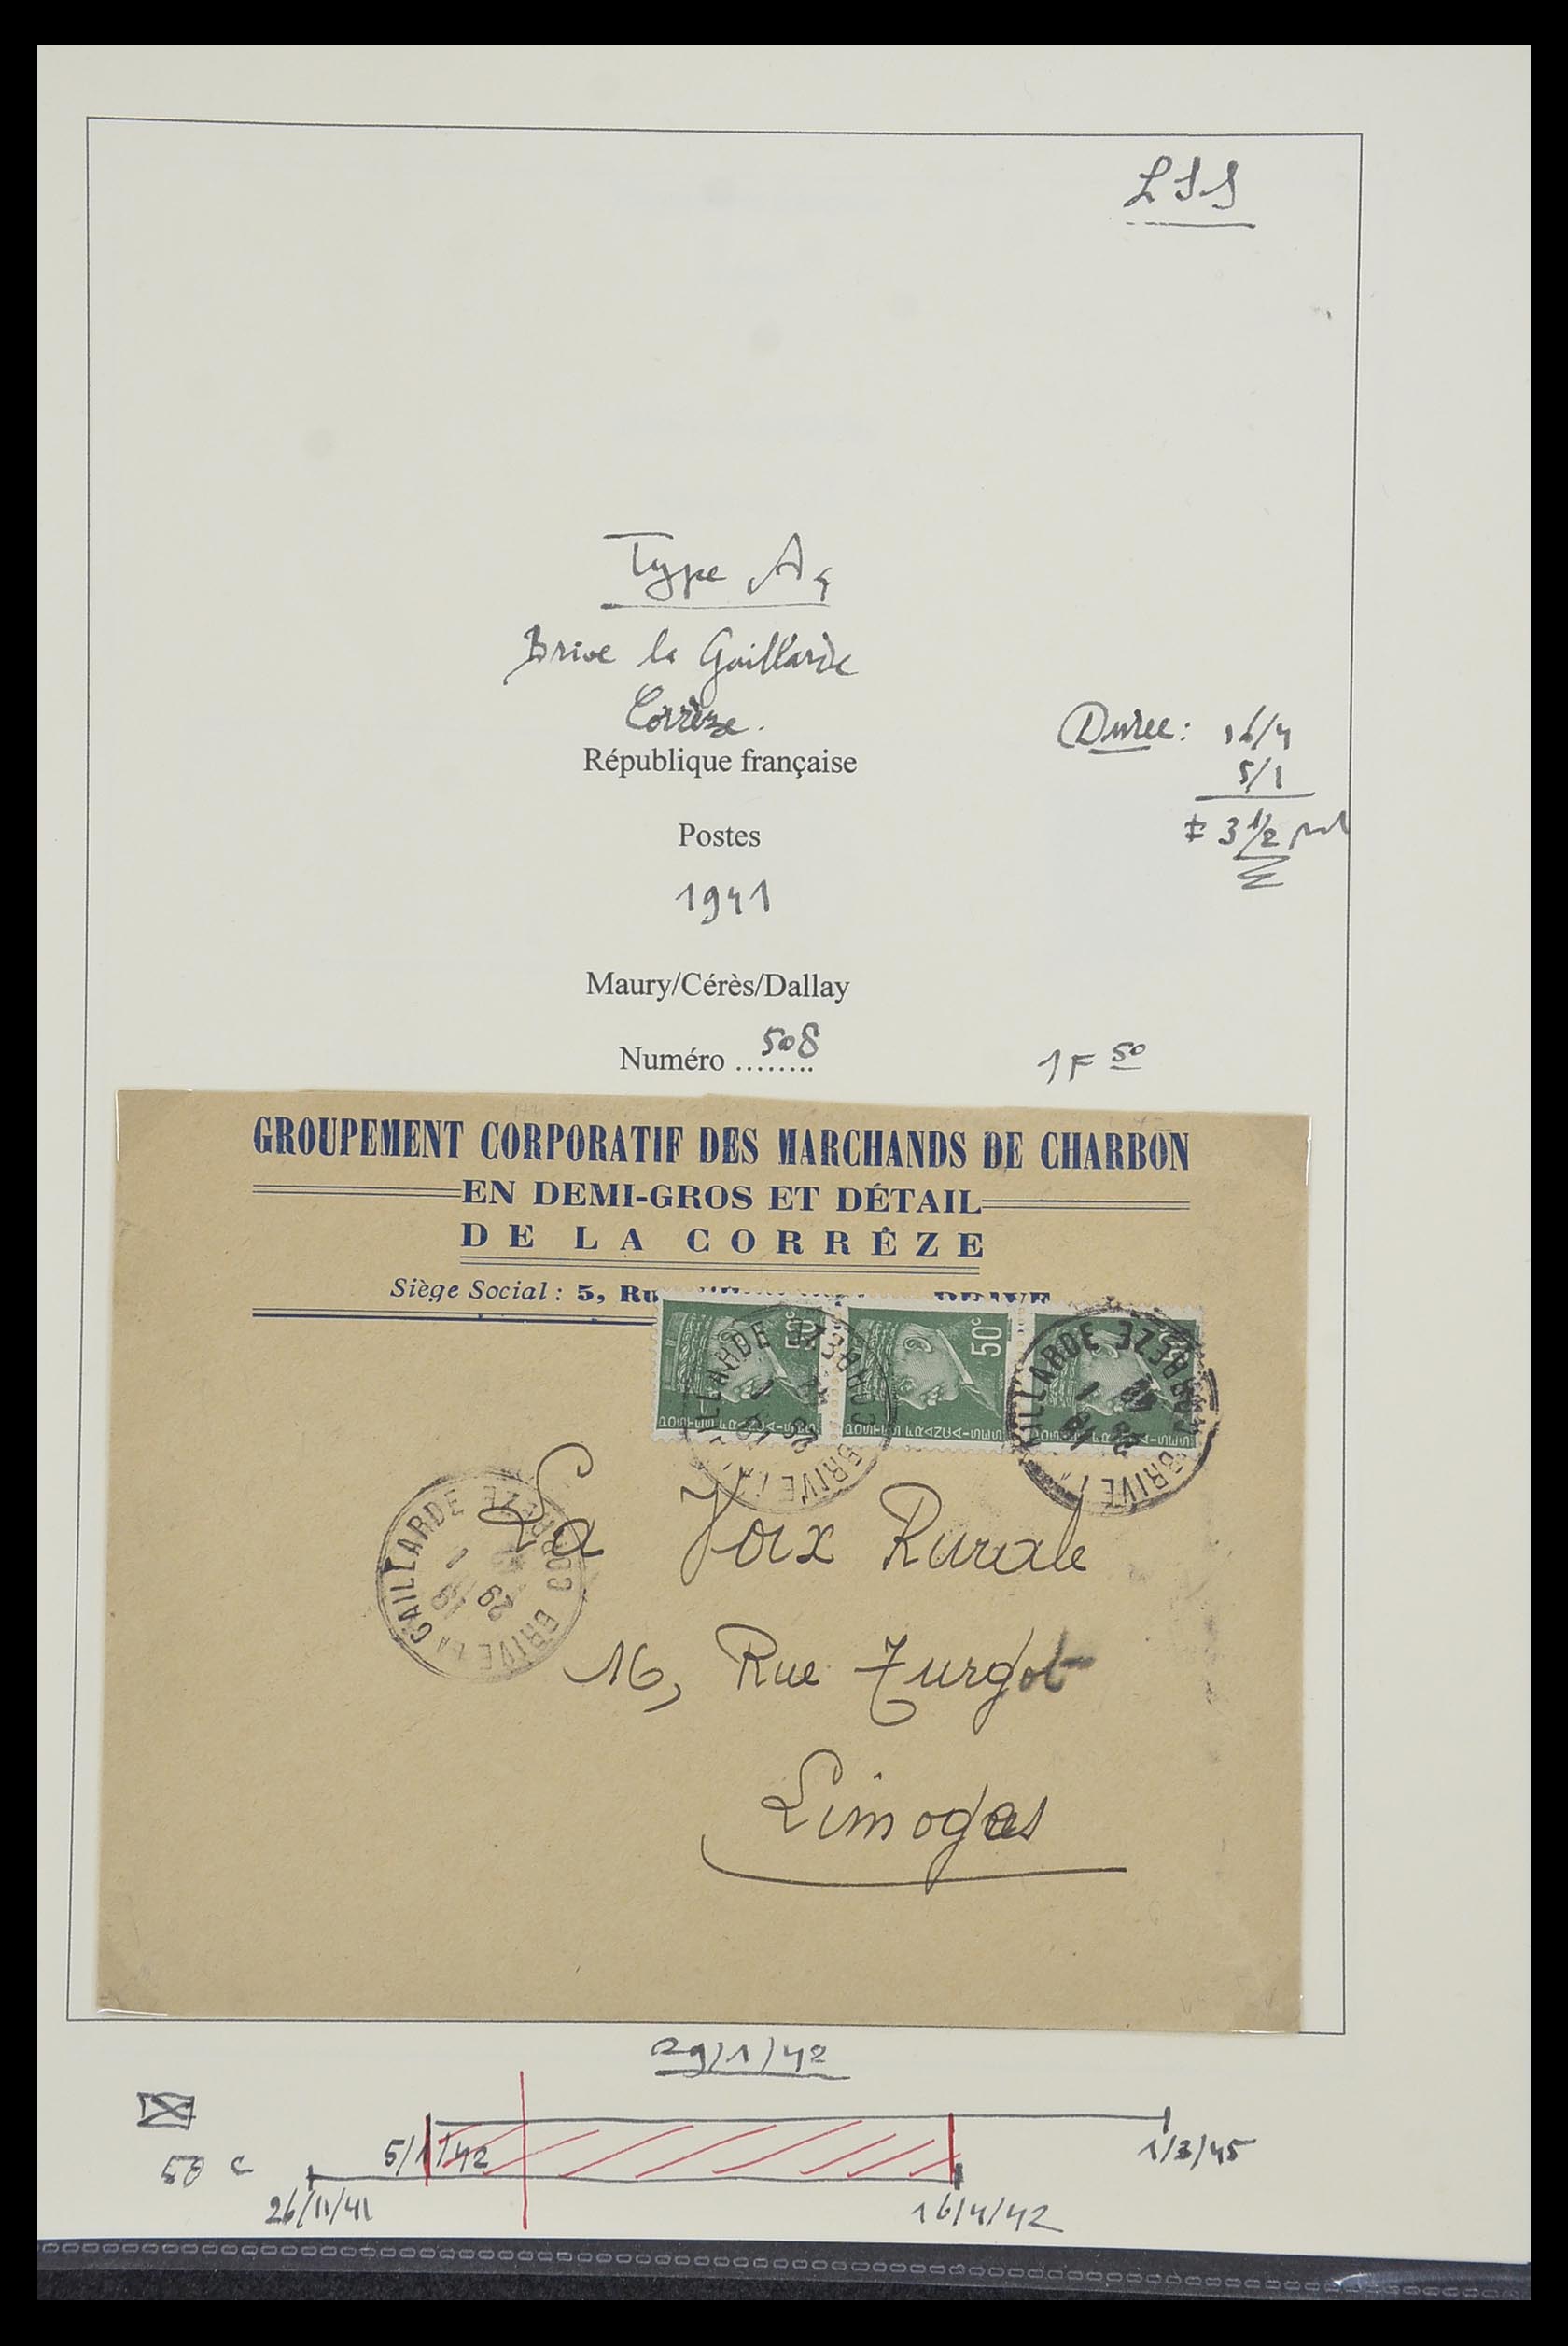 LSS
Type A4
Brive la Gaillarde
Corrèze.
République française
Durée: 16/4
5/1
± 3 1/2
Postes
1941
Maury/Cérès/Dallay
Numéro ........ 508
1F 50
GROUPEMENT CORPORATIF DES MARCHANDS DE CHARBON
EN DEMI-GROS ET DÉTAIL
DE LA CORRÈZE
Siège Social : 5, BRIVE
50c
POSTES FRANÇAISES POSTES FRANÇAISES POSTES FRANÇAISES
BRIVE LA GAILLARDE CORREZE
La Voix Rurale
16, Rue Turgot
Limoges
29/1/42
5/1/42
1/3/45
50 c
26/11/41
16/4/42